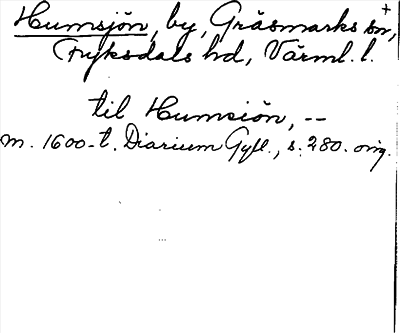 Humsjön, by, Gräsmarks sn, +
Fryksdals hd, Värml. l.
til Humsiön, --
m. 1600-t. Diarium Gyll., s. 280. orig.